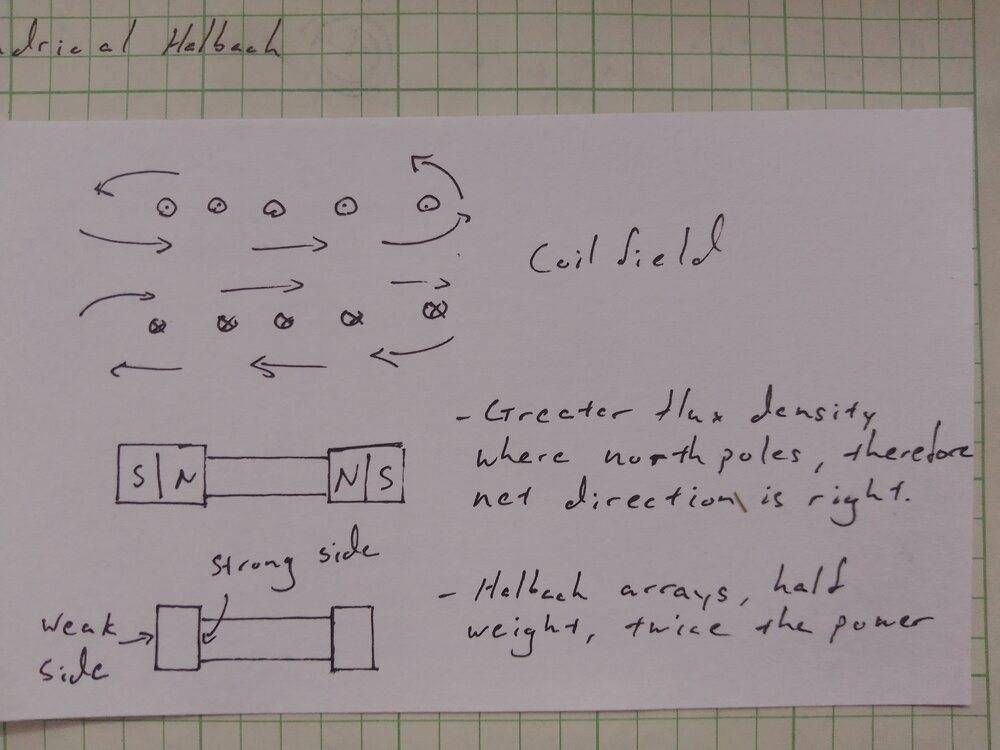 drical Halbach
Coil field
S N N S
- Greater flux density
where north poles, therefore
net direction is right.
strong side
weak
side
- Halbach arrays, half
weight, twice the power